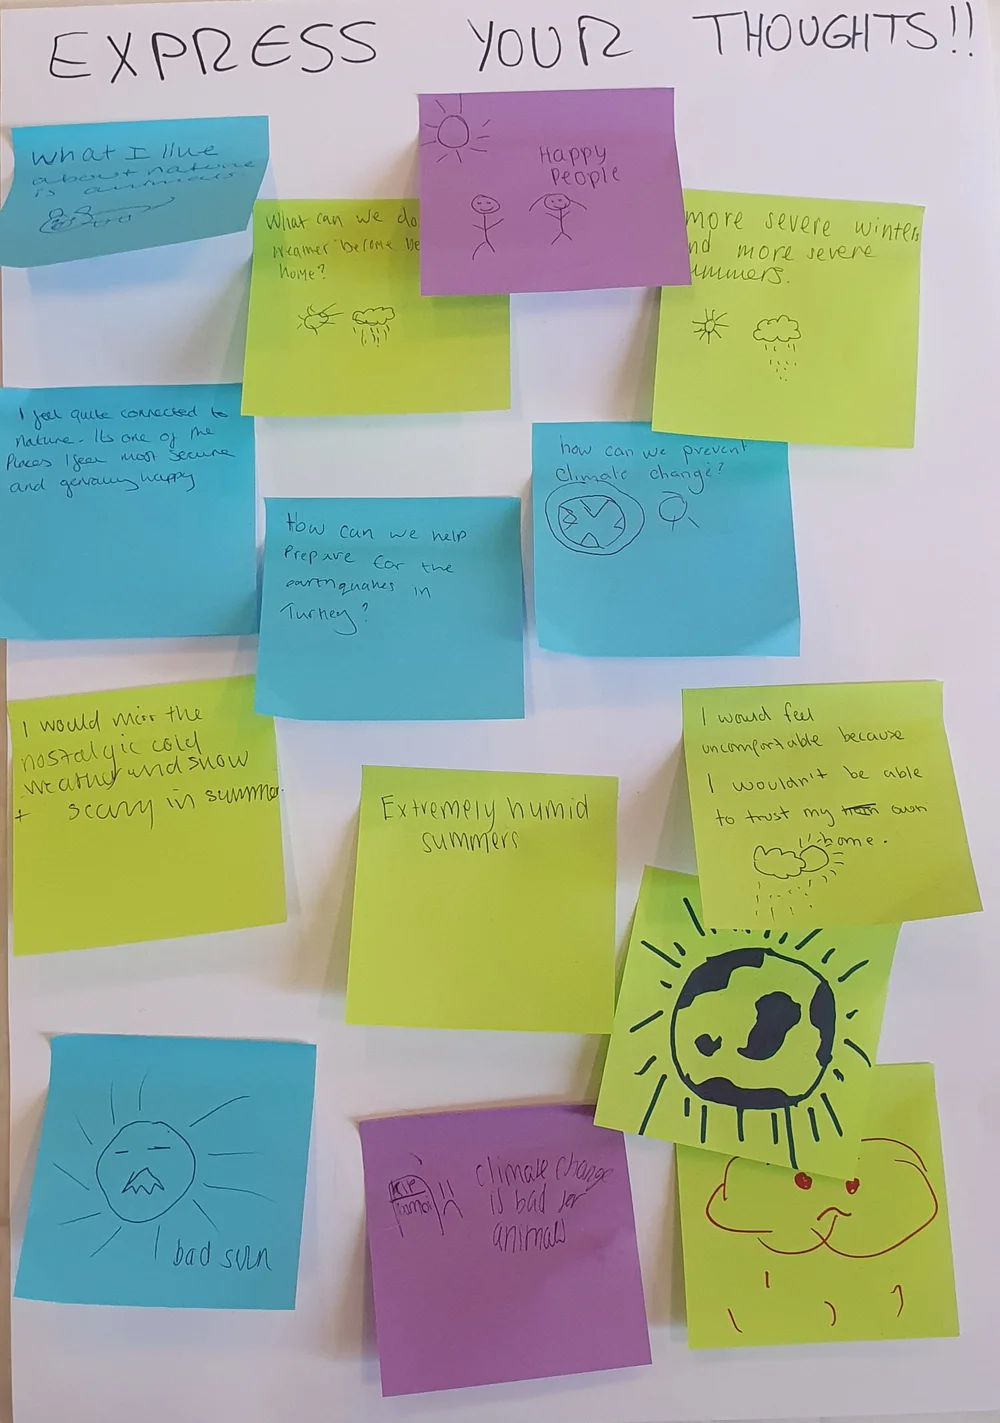 EXPRESS YOUR THOUGHTS!!
What I live
about nature
is animals
Happy
People
What can we do
home?
more severe winters
nd more severe
ummers.
I feel quite connected to
nature. Its one of the
Places I feel most secure
and generally happy
how can we prevent
climate change?
How can we help
Prepare for the
earthquakes in
Turkey?
I would miss the
nostalgic cold
weather and snow
+ scary in summer.
Extremely humid
summers
I would feel
uncomfortable because
I wouldn't be able
to trust my own
home.
bad sun
climate change
is bad for
animals